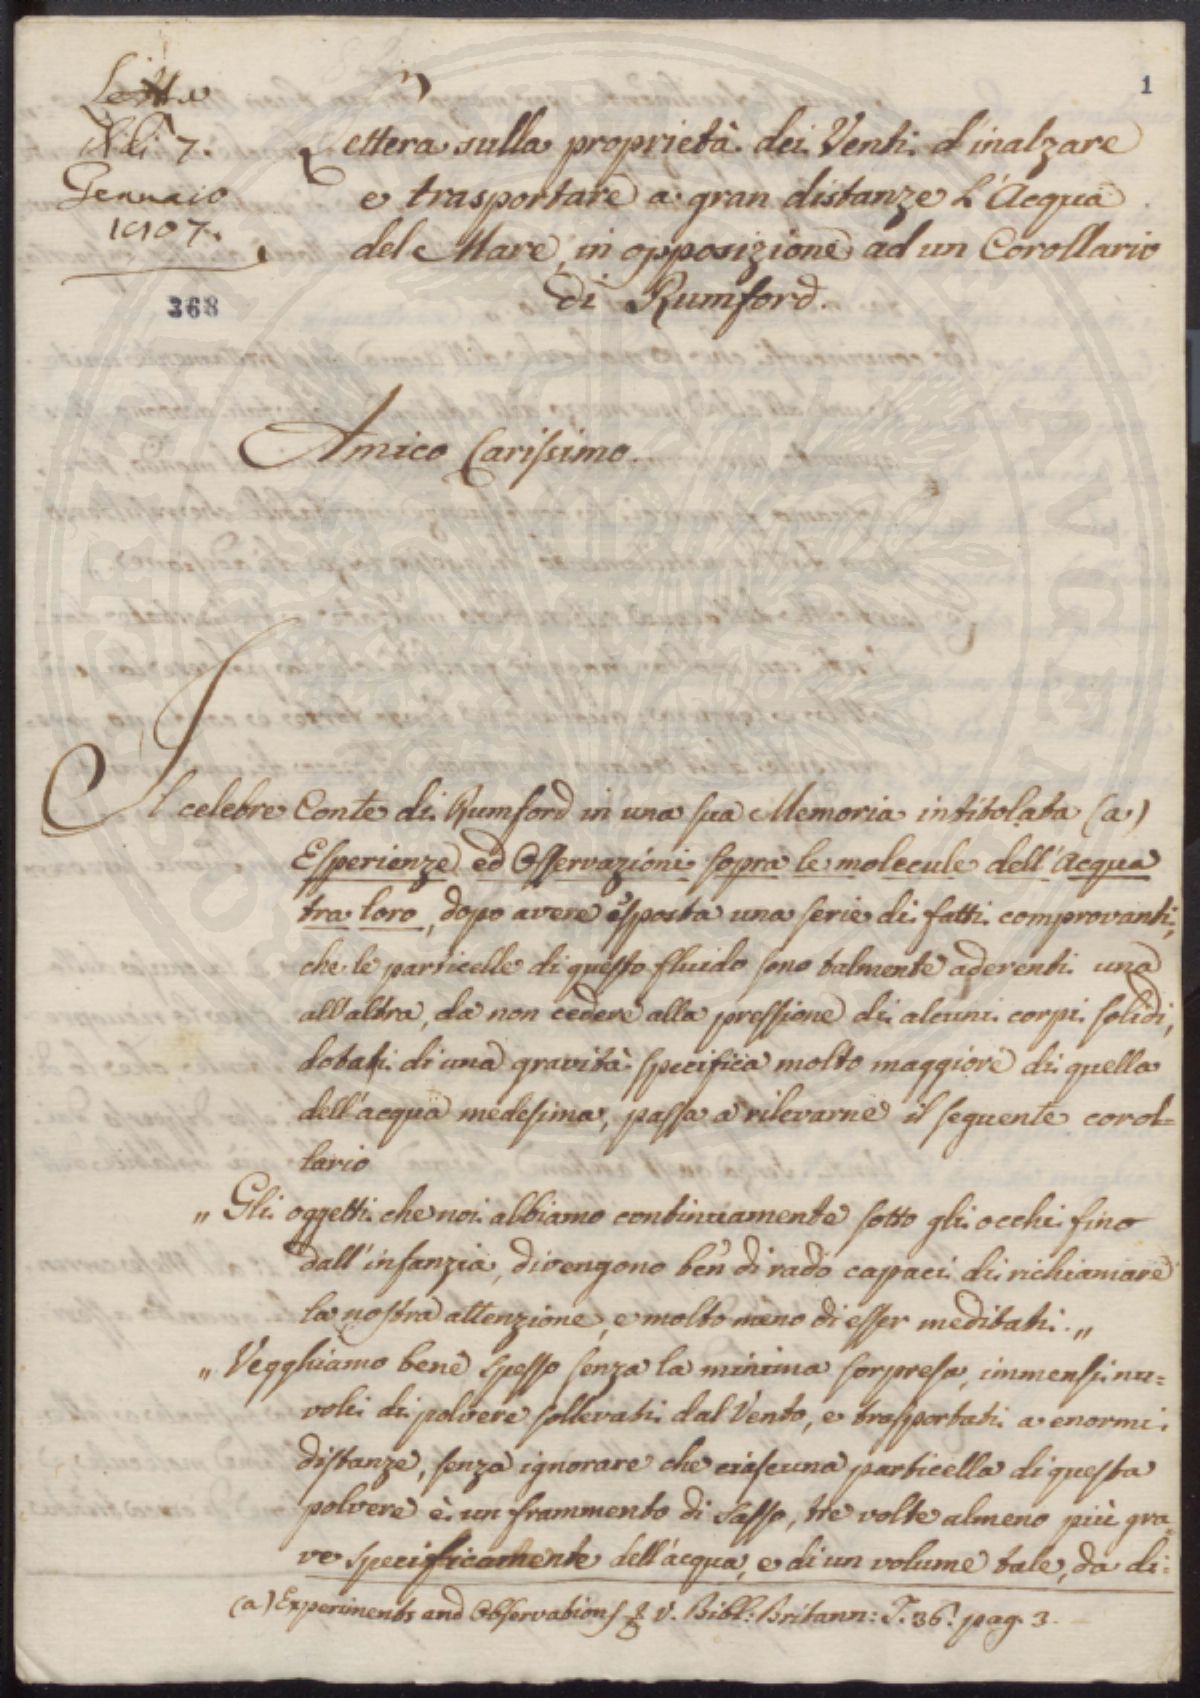 1
Letta
il dì 7.
Gennaio
1807.
368
Lettera sulla proprietà dei Venti d'inalzare
e trasportare a gran distanze l'Acqua
del Mare, in opposizione ad un Corollario
di Rumford.
Amico Carissimo.
Il celebre Conte di Rumford in una sua Memoria intitolata (a)
Esperienze ed Osservazioni sopra le molecule dell'Acqua
tra loro, dopo avere esposta una serie di fatti comprovanti,
che le particelle di questo fluido sono talmente aderenti una
all'altra, da non cedere alla pressione di alcuni corpi solidi,
dotati di una gravità specifica molto maggiore di quella
dell'acqua medesima, passa a rilevarne il seguente corol=
lario
„ Gli oggetti che noi abbiamo continuamente sotto gli occhi fino
dall'infanzia, divengono ben di rado capaci di richiamare
la nostra attenzione, e molto meno di esser meditati. „
„ Vegghiamo bene spesso senza la minima sorpresa, immensi nu=
voli di polvere sollevati dal Vento, e trasportati a enormi
distanze, senza ignorare che ciascuna particella di questa
polvere è un frammento di Sasso, tre volte almeno più gra=
ve specificamente dell'acqua, e di un volume tale, da di=
(a) Experiments and Observations & V. Bibl: Britann: T. 36. pag. 3.